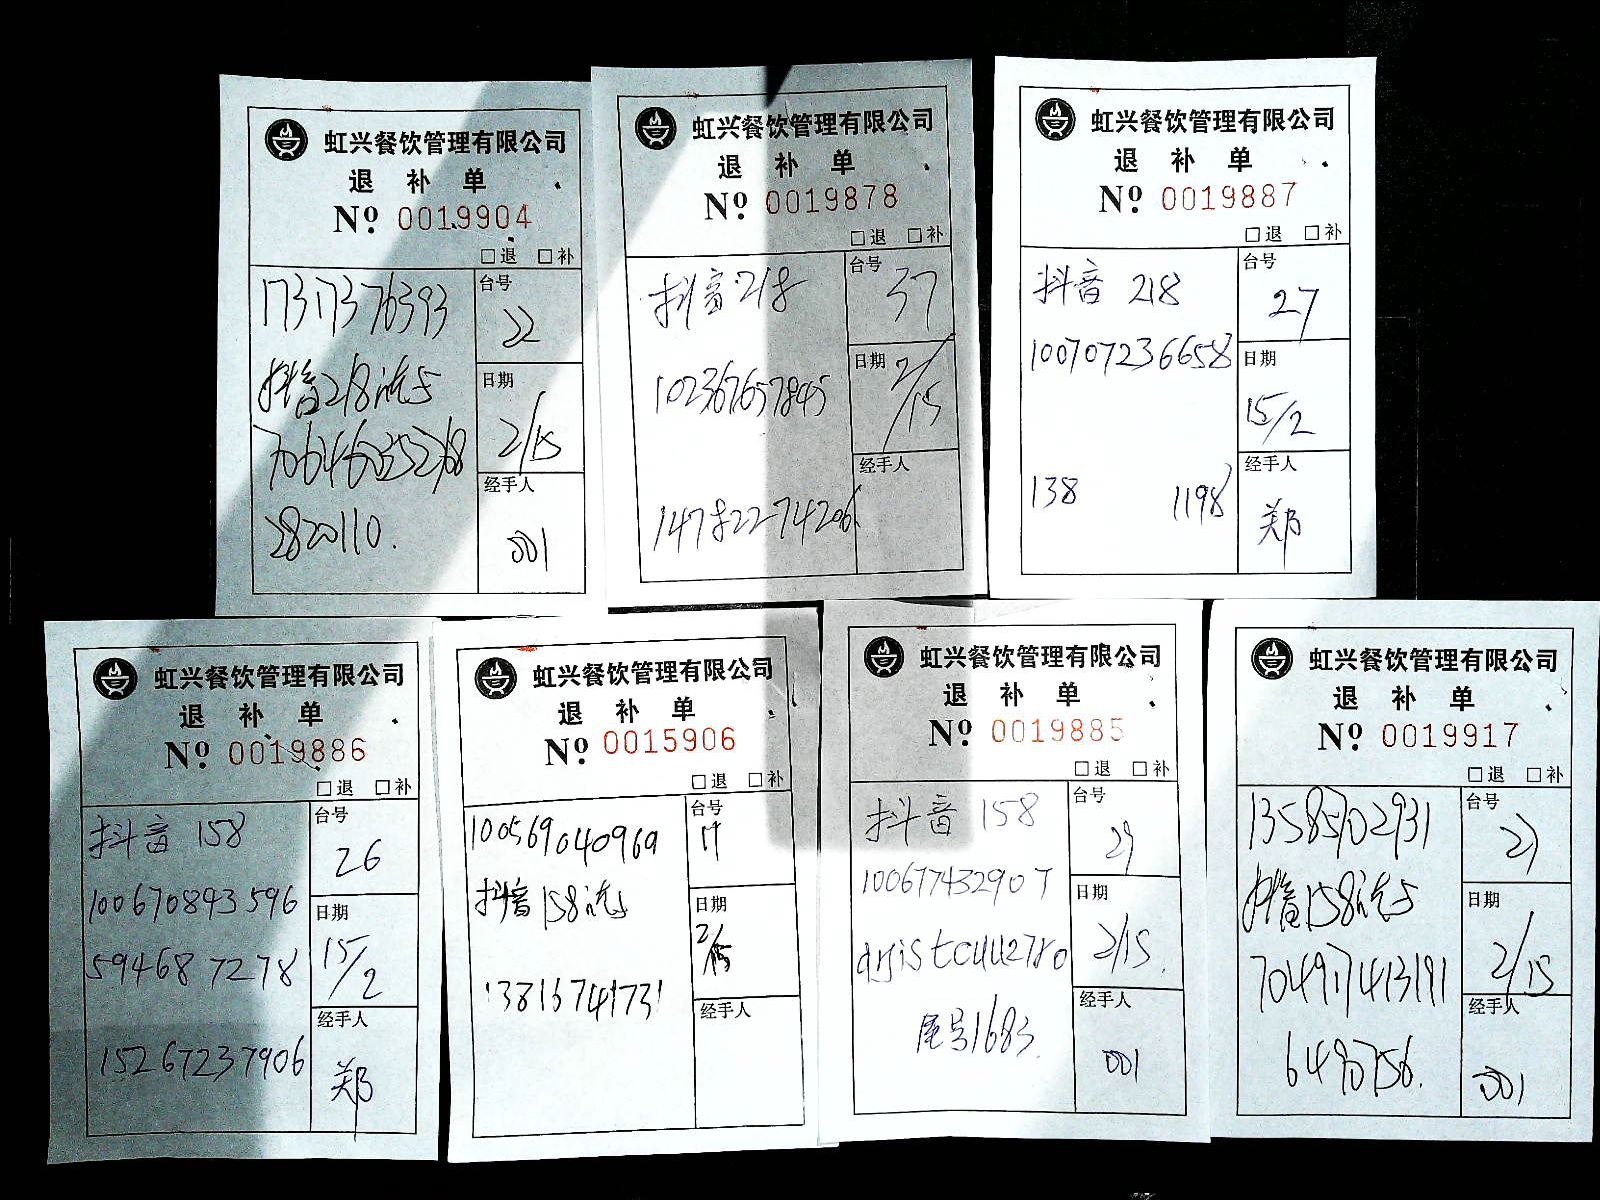 虹兴餐饮管理有限公司
退 补 单
Nº 0019904
□退 □补
17317376393
抖音218说与
706460352768
2820110.
台号
22
日期
2/15
经手人
001
虹兴餐饮管理有限公司
退 补 单
Nº 0019878
□退 □补
抖音218
102367657845
147822274206
台号
37
日期
2/15
经手人
虹兴餐饮管理有限公司
退 补 单
Nº 0019887
□退 □补
抖音 218
100707236658
138 1198
台号
27
日期
15/2
经手人
郑
虹兴餐饮管理有限公司
退 补 单
Nº 0019886
□退 □补
抖音 158
100670893596
594687278
15267237906
台号
26
日期
15/2
经手人
郑
虹兴餐饮管理有限公司
退 补 单
Nº 0015906
□退 □补
100569040969
抖音158
13816741731
台号
日期
2/15
经手人
虹兴餐饮管理有限公司
退 补 单
Nº 0019885
□退 □补
抖音 158
尾号1683
台号
29
日期
2/15.
经手人
001
虹兴餐饮管理有限公司
退 补 单
Nº 0019917
□退 □补
13585702931
抖音158
704917413191
6490756.
台号
日期
2/15
经手人
001